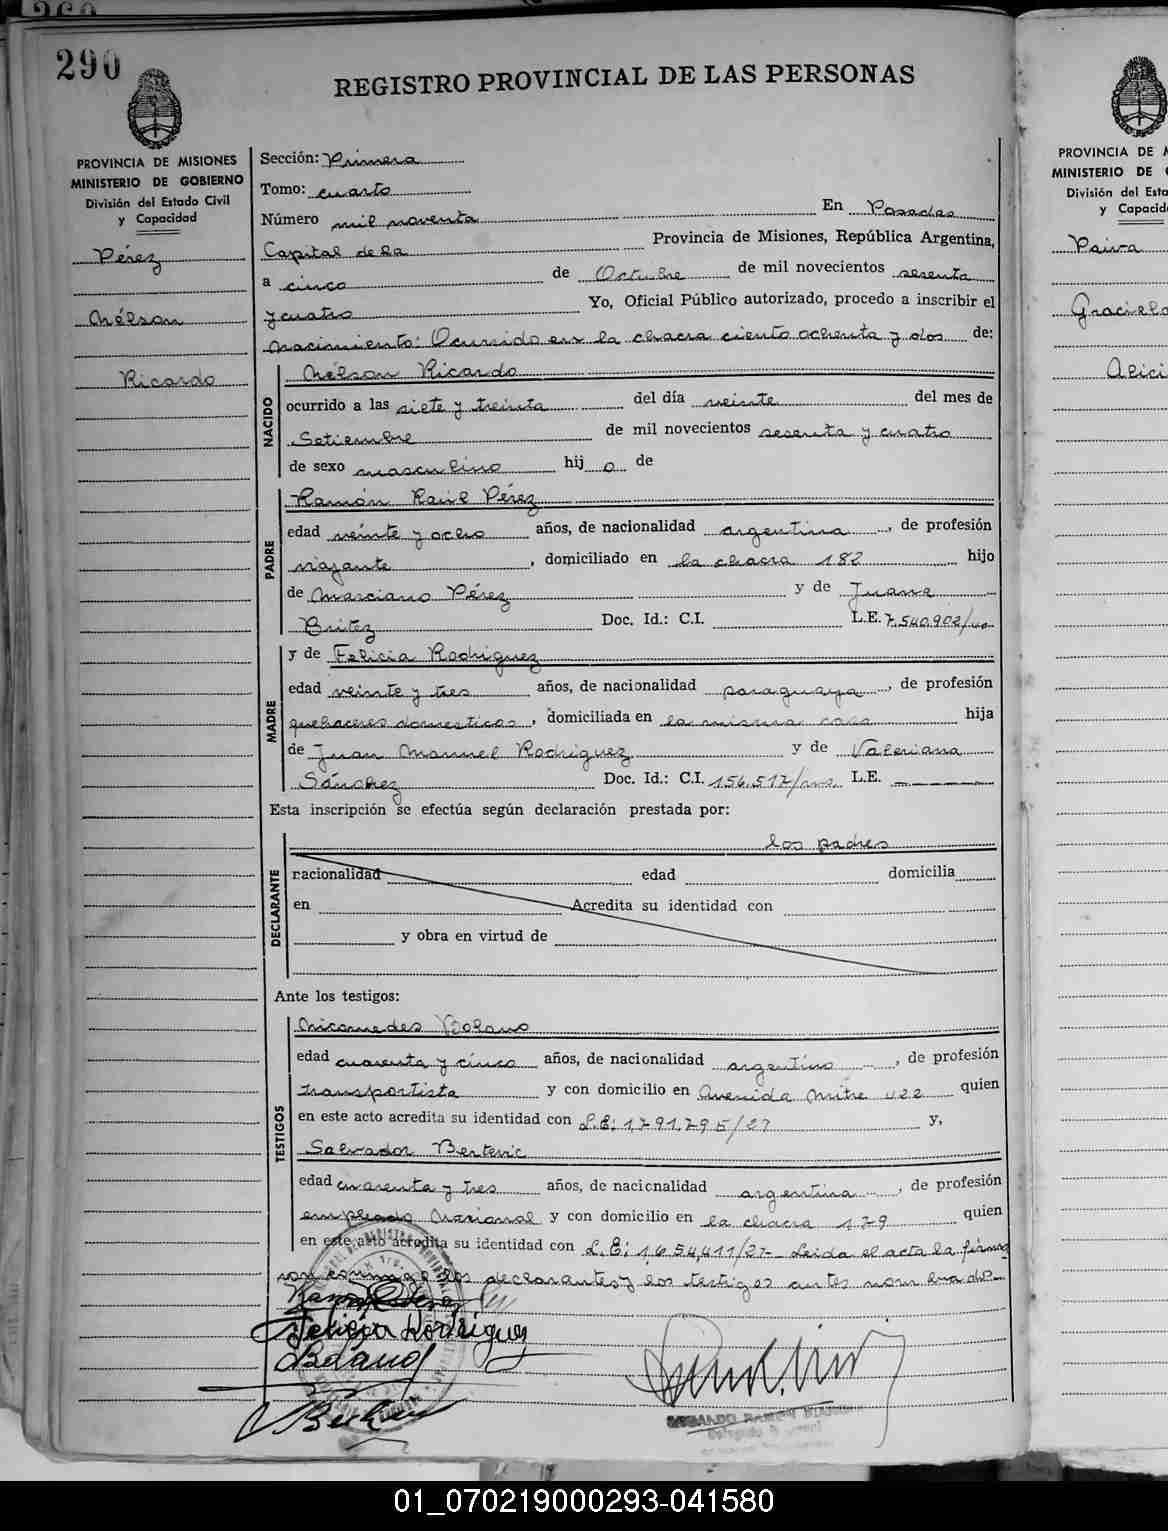 290
REGISTRO PROVINCIAL DE LAS PERSONAS
PROVINCIA DE MISIONES
MINISTERIO DE GOBIERNO
División del Estado Civil
y Capacidad
Pérez
Nélson
Ricardo
Sección: Primera
Tomo: cuarto
Número mil noventa En Posadas
Capital de la Provincia de Misiones, República Argentina,
a cinco de Octubre de mil novecientos sesenta
y cuatro Yo, Oficial Público autorizado, procedo a inscribir el
nacimiento: Ocurrido en la chacra ciento ochenta y dos de:
NACIDO
Nélson Ricardo
ocurrido a las siete y treinta del día veinte del mes de
Setiembre de mil novecientos sesenta y cuatro
de sexo masculino hij o de
PADRE
Ramón Raúl Pérez
edad veinte y ocho años, de nacionalidad argentina, de profesión
viajante, domiciliado en la chacra 182 hijo
de Marciano Pérez y de Juana
Britez Doc. Id.: C.I. L.E. 7.540.902/
MADRE
y de Felicia Rodriguez
edad veinte y tres años, de nacionalidad paraguaya, de profesión
quehaceres domesticos, domiciliada en la misma casa hija
de Juan Manuel Rodriguez y de Valeriana
Sánchez Doc. Id.: C.I. 156.517/ L.E.
Esta inscripción se efectúa según declaración prestada por:
DECLARANTE
los padres
nacionalidad edad domicilia
en Acredita su identidad con
y obra en virtud de
Ante los testigos:
TESTIGOS
Nicomedes Bolano
edad cuarenta y cinco años, de nacionalidad argentino, de profesión
transportista y con domicilio en Avenida Mitre 422 quien
en este acto acredita su identidad con L.E: 1,791,795/27 y,
Salvador Bertevic
edad cuarenta y tres años, de nacionalidad argentina, de profesión
empleado Nacional y con domicilio en la chacra 179 quien
en este acto acredita su identidad con L.E: 1,654,411/27- Leida el acta la firman
con conmigo los declarantes y los testigos antes nombrados-
Felicia Rodriguez
Bolano
PROVINCIA DE
MINISTERIO DE
División del Esta
y Capacid
Paiva
Graciela
Alici
01_070219000293-041580